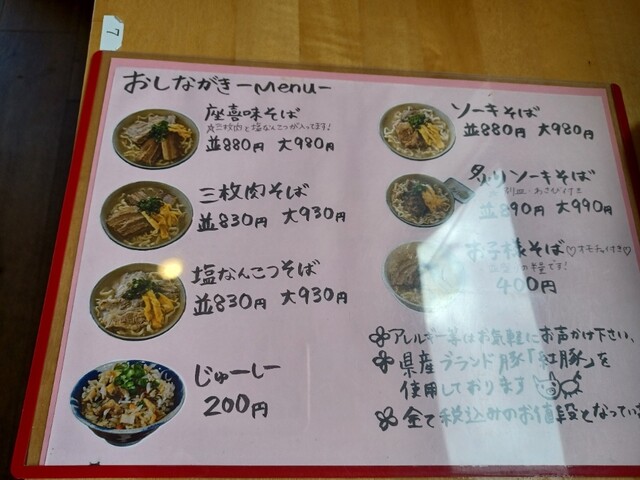 7
おしながき-Menu-
座喜味そば
☆三枚肉と塩なんこつが入ってます!
並880円 大980円
三枚肉そば
並830円 大930円
塩なんこつそば
並830円 大930円
じゅーしー
200円
ソーキそば
並880円 大980円
炙りソーキそば
別皿・わさび付き
並890円 大990円
お子様そば ♡オモチャ付き♡
の量です!
400円
アレルギー等はお気軽にお声かけ下さい。
県産ブランド豚「紅豚」を
使用しております
全て税込みのお値段となってい